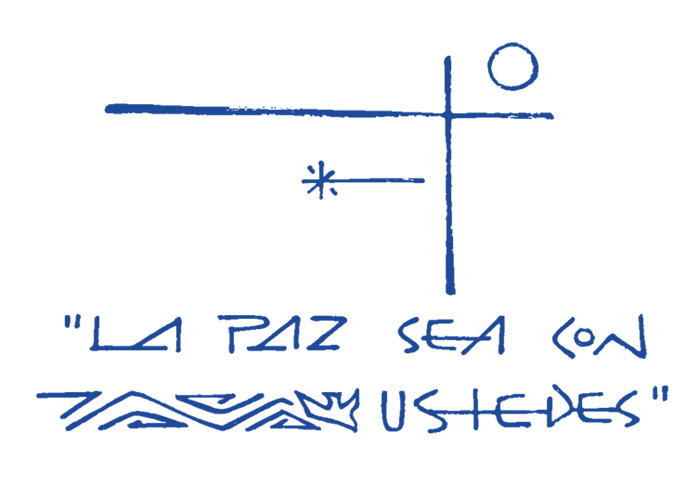 "LA PAZ SEA CON
USTEDES"